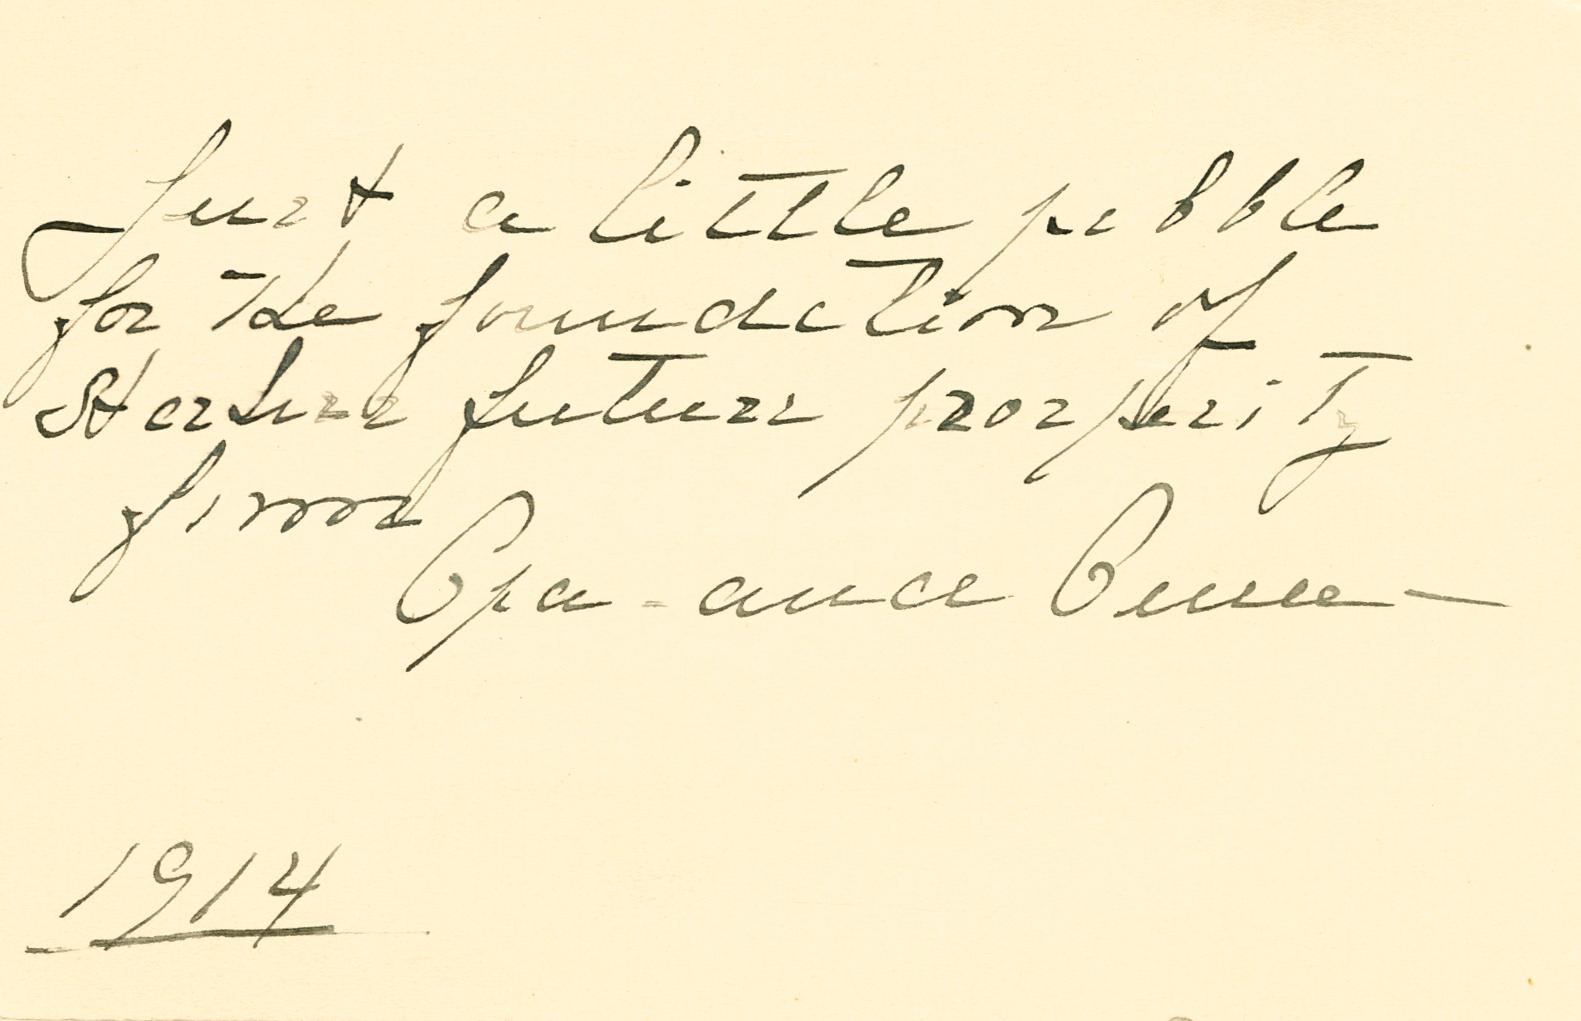 Just a little pebble
for the foundation of
future prosperity
from
Opa -
1914